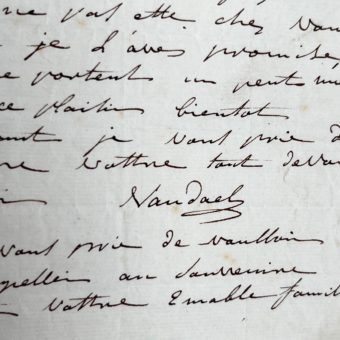 ne pas ette chez vou
je l'aves promise
se portent un peut mi
ce plaisir bientot
je vous prie d
vottre tout devou
Vandael
vous prie de voulloir
appeller au Souvenire
vottre Emable famil